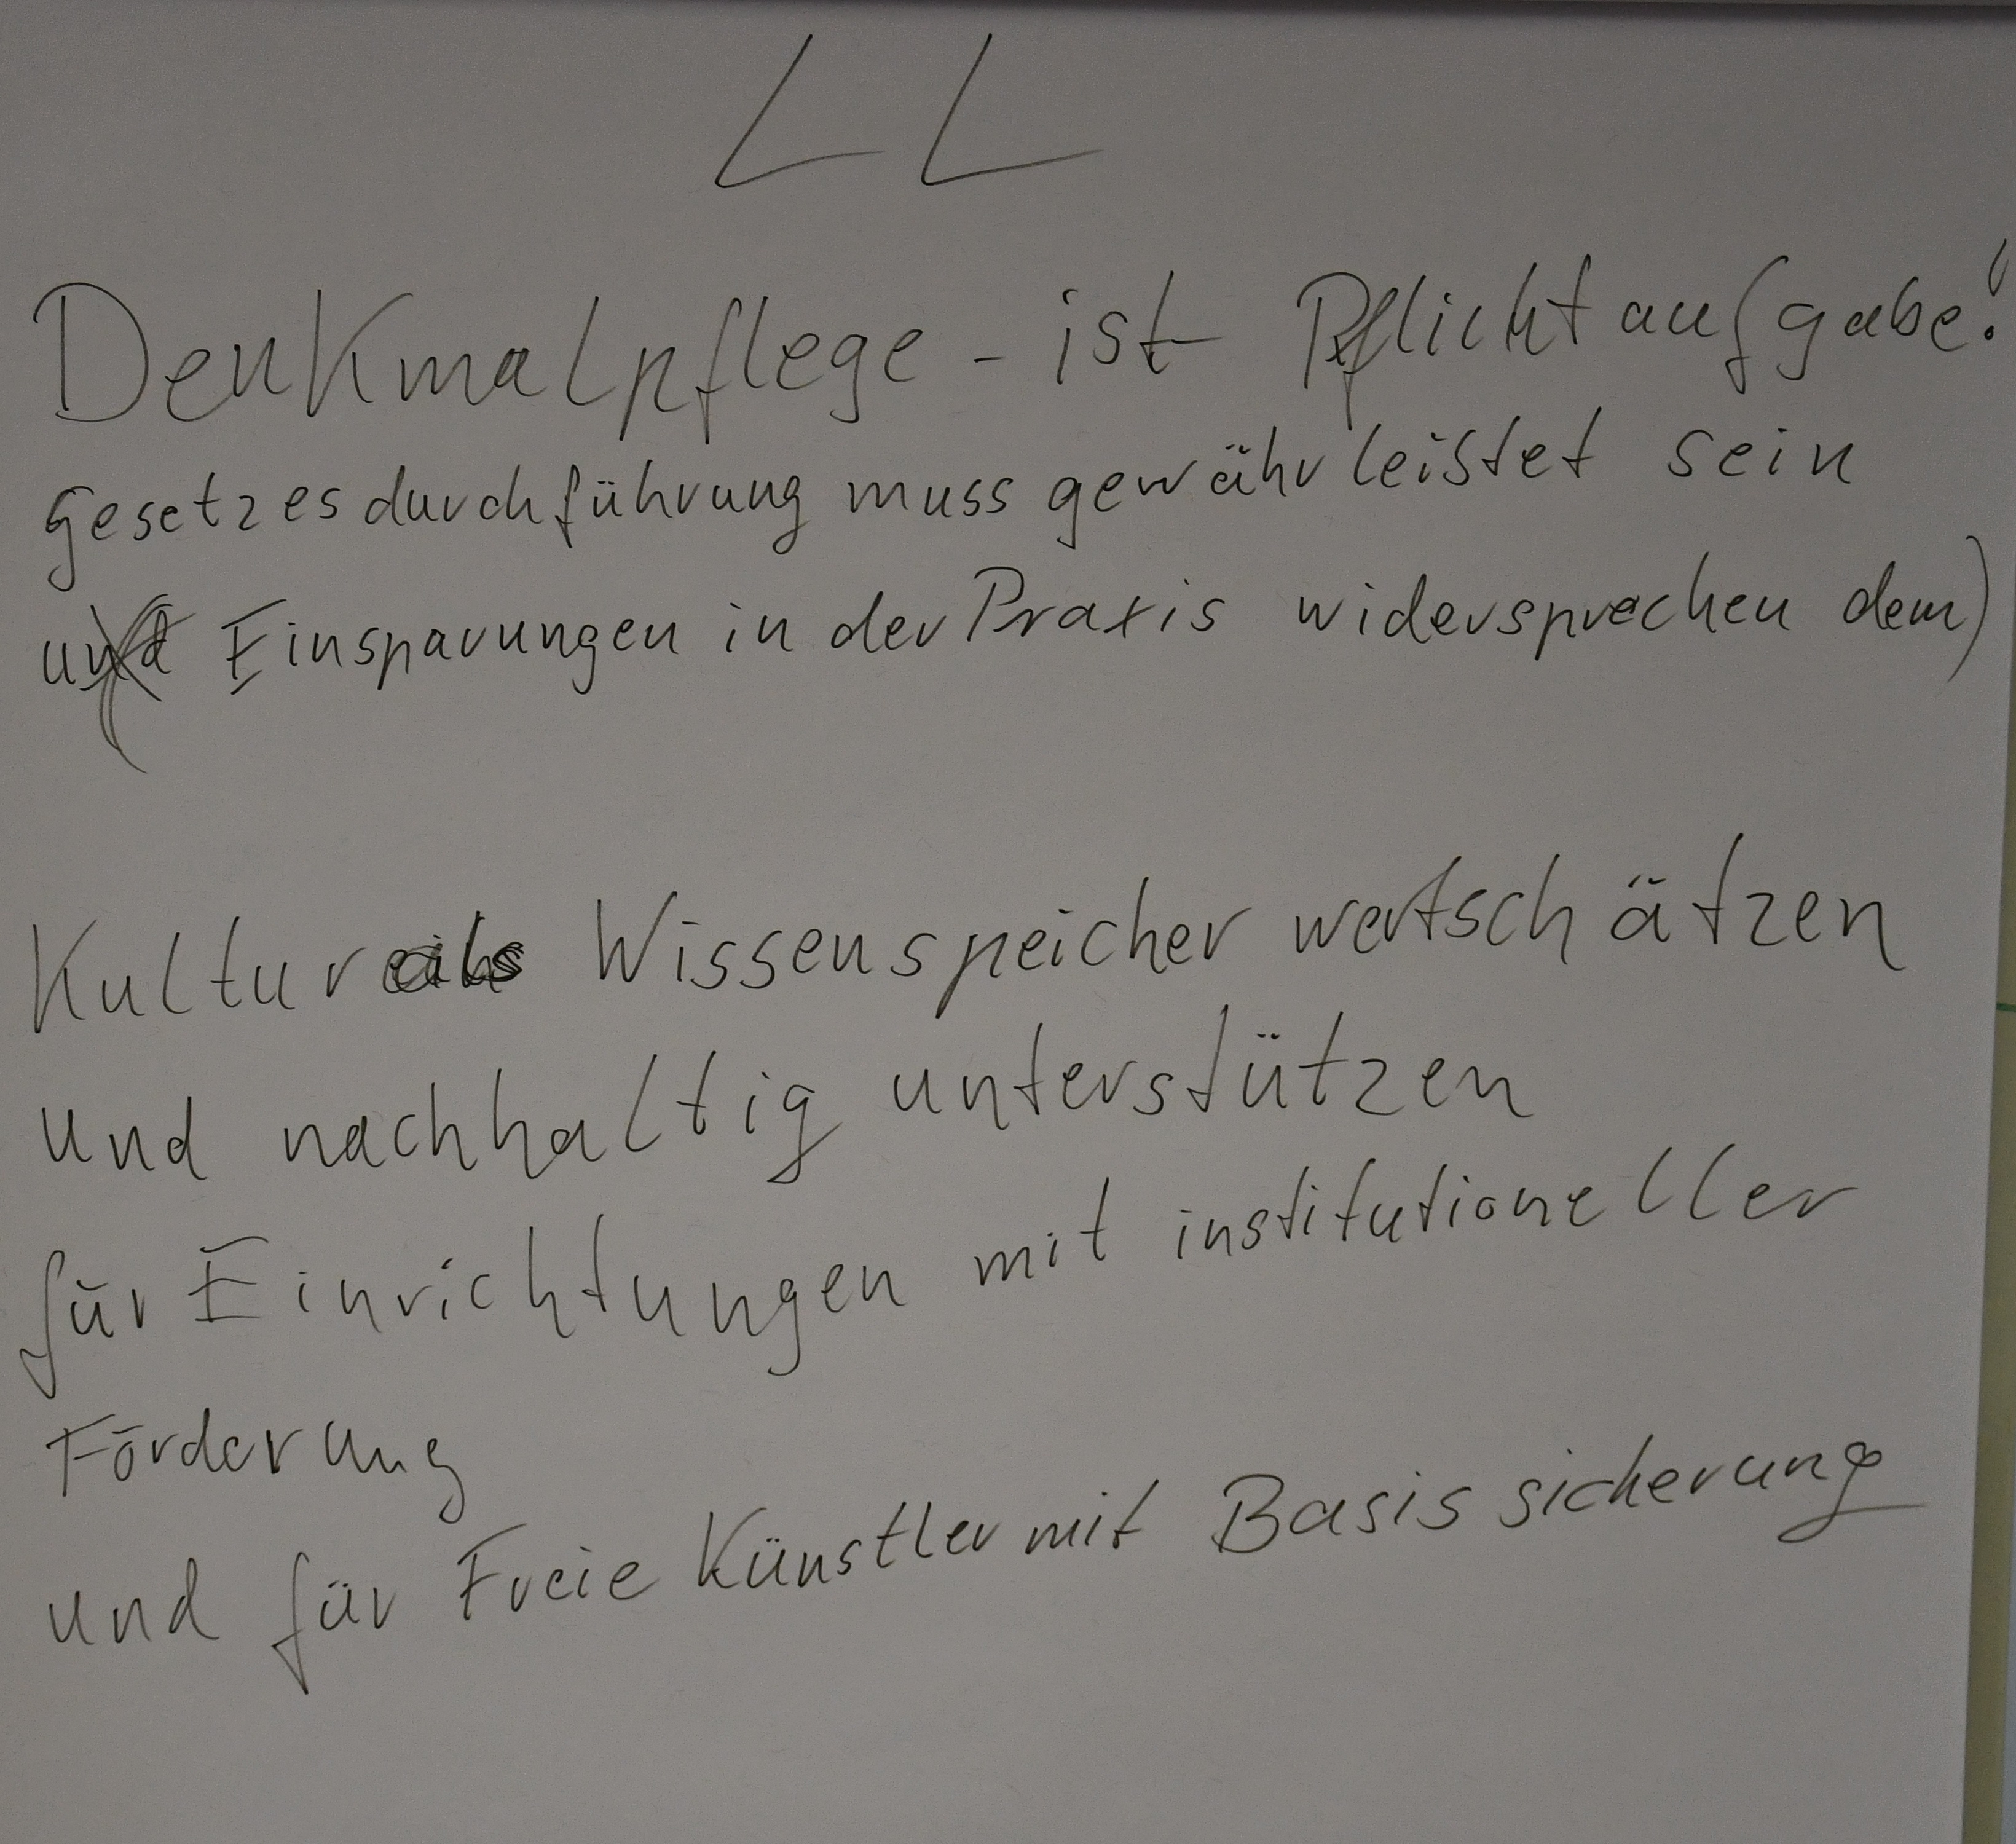 LL
Denkmalpflege - ist Pflichtaufgabe!
Gesetzesdurchführung muss gewährleistet sein
(Einsparungen in der Praxis widersprechen dem)
Kultur als Wissenspeicher wertschätzen
und nachhaltig unterstützen
für Einrichtungen mit institutioneller
Förderung
und für Freie Künstler mit Basissicherung